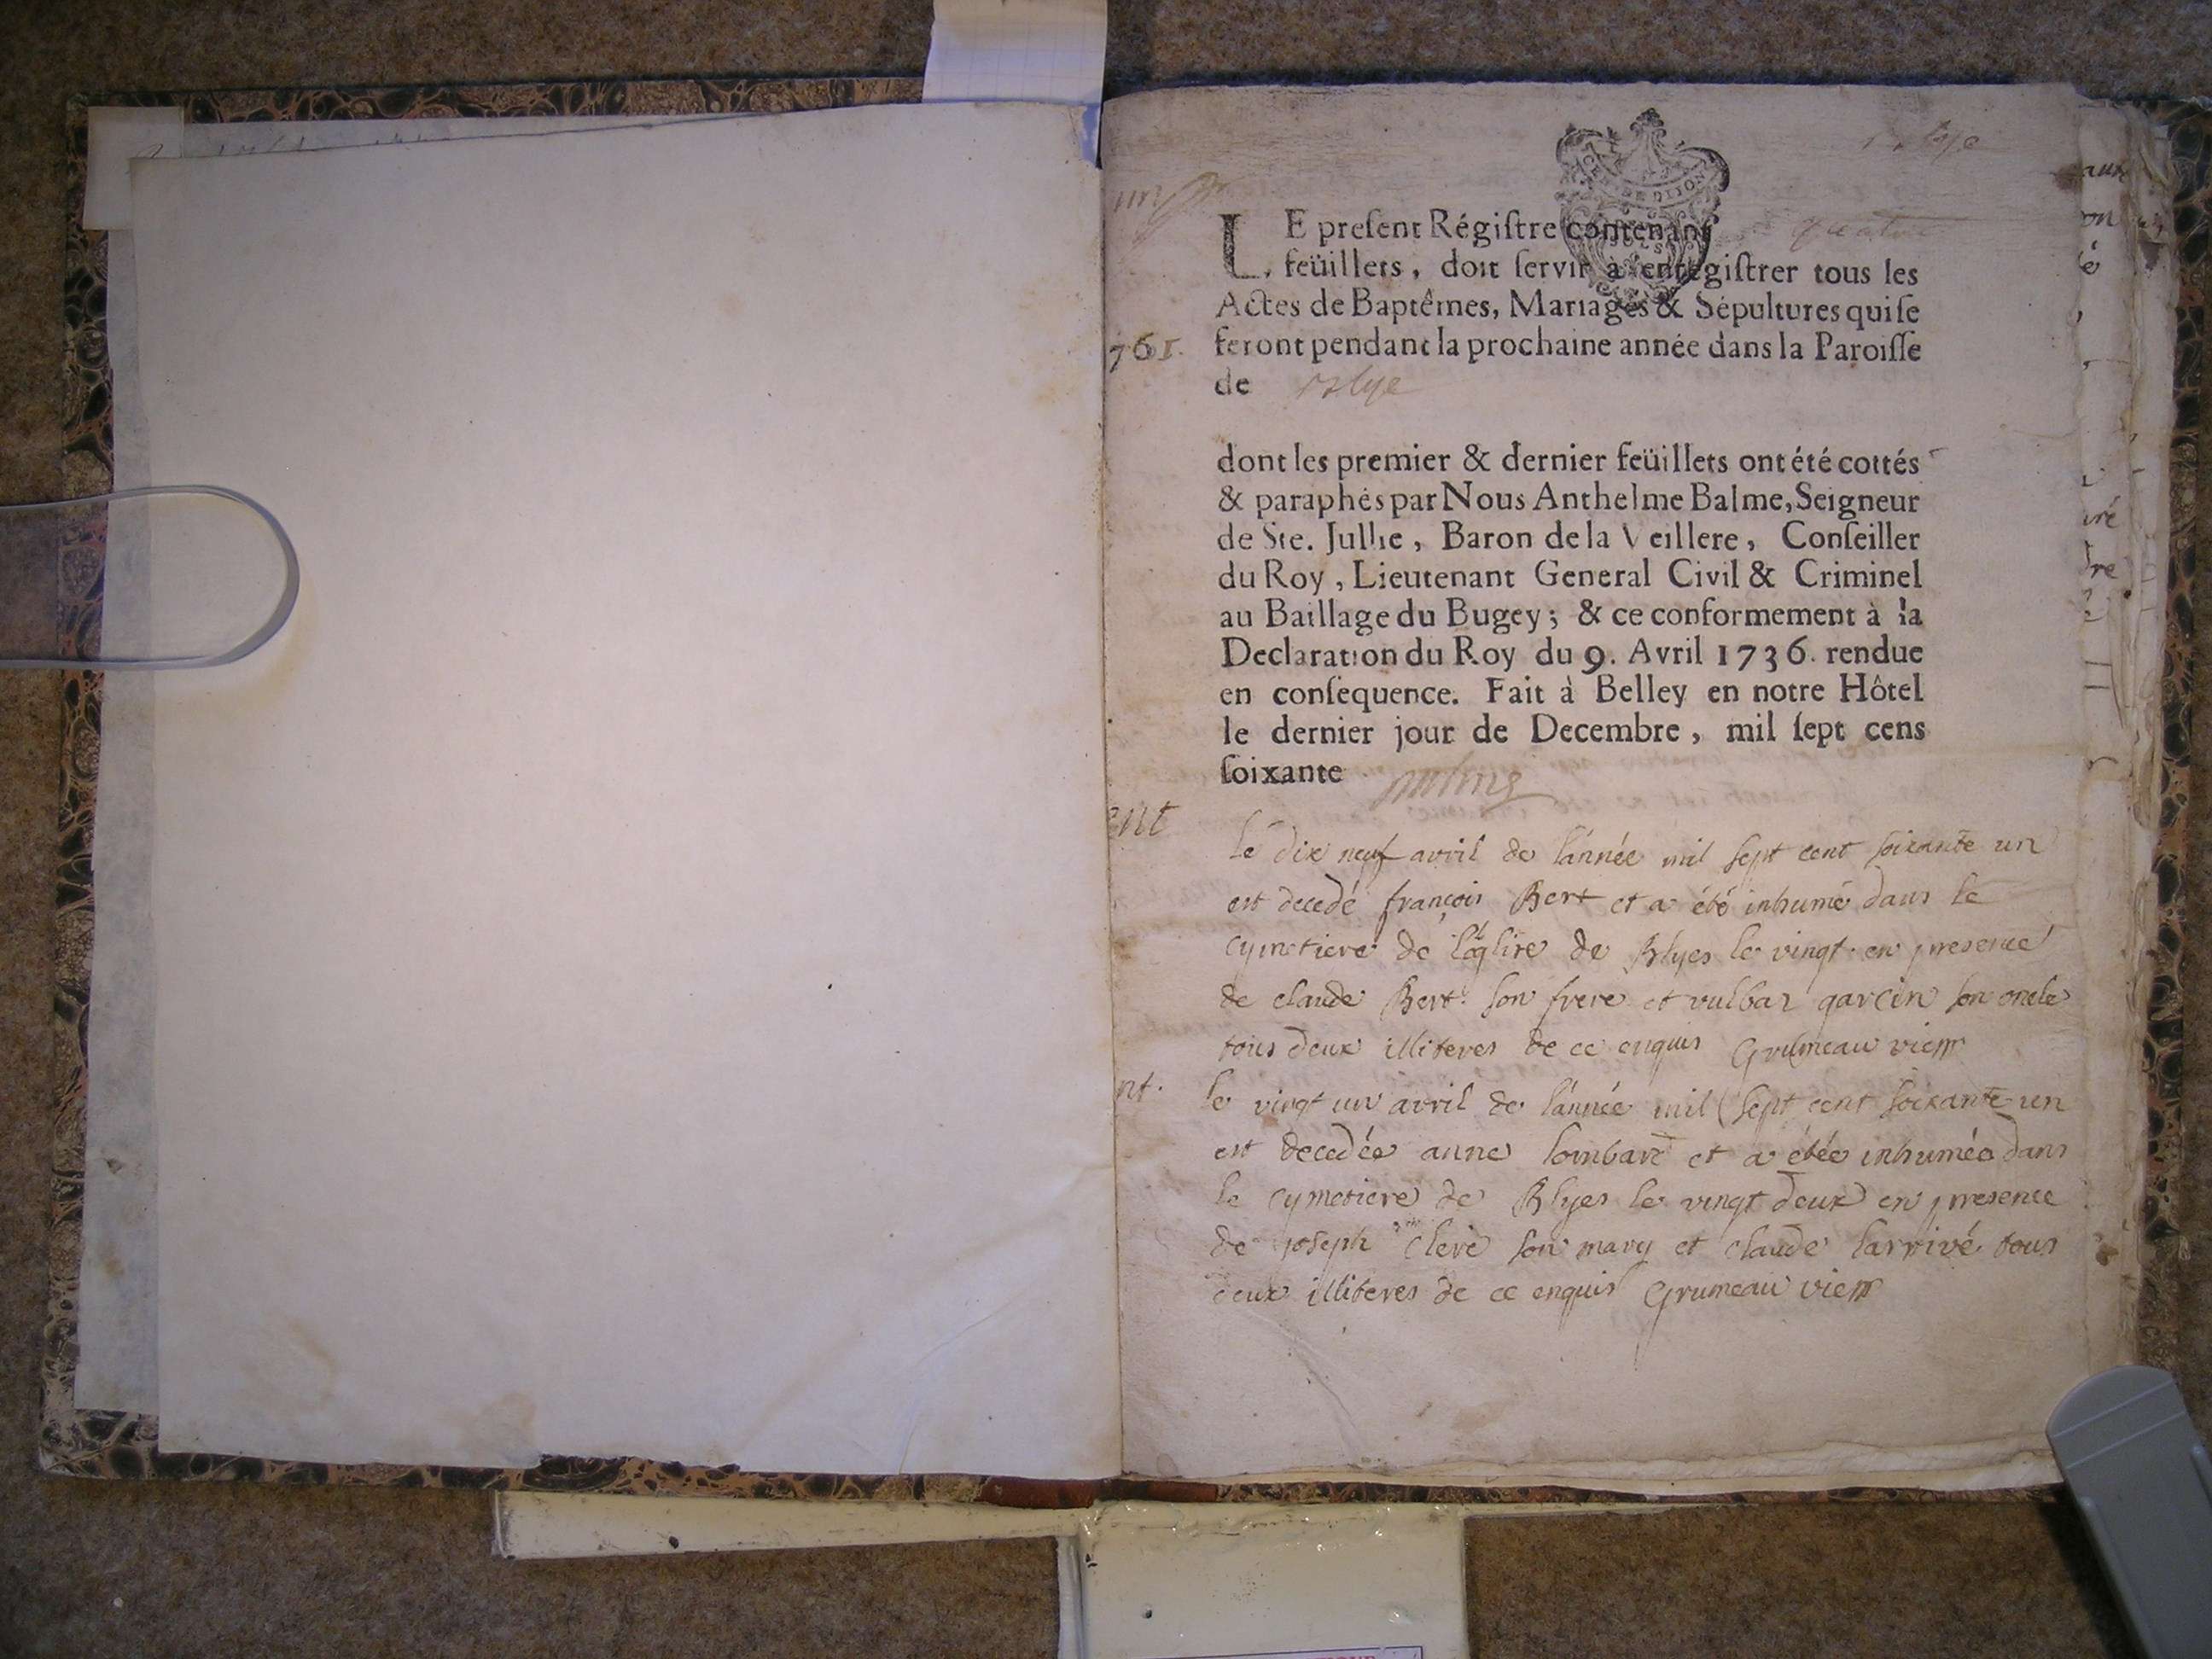 GEN. DE DIJON
LE preſent Régiſtre contenant quatre
feüillets, doit ſervir à enregiſtrer tous les
Actes de Baptêmes, Mariages & Sépultures qui ſe
761. feront pendant la prochaine année dans la Paroiſſe
de Blye
dont les premier & dernier feüillets ont été cottés
& paraphés par Nous Anthelme Balme, Seigneur
de Ste. Jullie, Baron de la Veillere, Conſeiller
du Roy, Lieutenant General Civil & Criminel
au Baillage du Bugey; & ce conformement à la
Declaration du Roy du 9. Avril 1736. rendue
en conſequence. Fait à Belley en notre Hôtel
le dernier jour de Decembre, mil ſept cens
ſoixante Balme
ent
le dix neuf avril de l'année mil sept cent soixante un
est decedé françois Bert et a été inhumé dans le
cymetiere de l'église de Blyes le vingt en presence
de claude Bert son frere et vulbaz garcin son oncle
tous deux illiteres de ce enquis Grumeau vicrr
nt. le vingt un avril de l'année mil sept cent soixante un
est decedée anne lombard et a étée inhumée dans
le cymetiere de Blyes le vingt deux en presence
de joseph clere son mary et claude larrivé tous
deux illiteres de ce enquis Grumeau vicrr